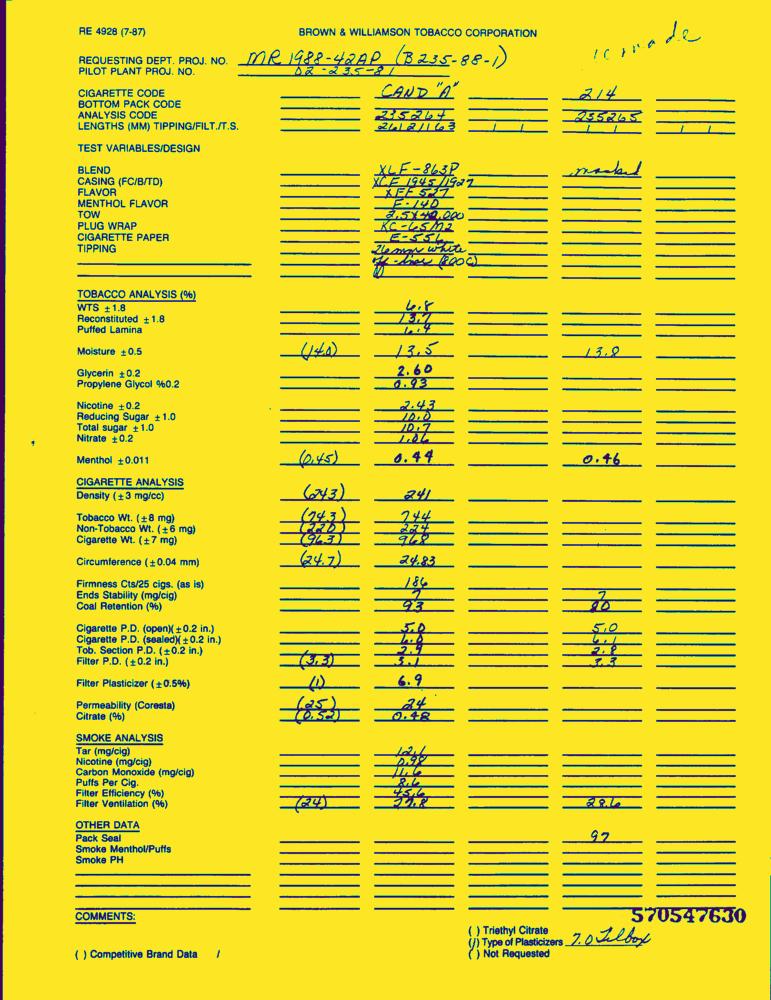 RE 4928 (7-87)
BROWN & WILLIAMSON TOBACCO CORPORATION
REQUESTING DEPT. PROJ. NO. MR 1988-42AP (B235-88-1)
PILOT PLANT PROJ. NO. 02-235-81
CIGARETTE CODE CAND "A" 214
BOTTOM PACK CODE
ANALYSIS CODE 235264 235265
LENGTHS (MM) TIPPING/FILT./T.S. 26121163
TEST VARIABLES/DESIGN
BLEND XLF-863P masked
CASING (FC/B/TD) XCF 1945/1927
FLAVOR XFF 527
MENTHOL FLAVOR F-140
TOW 2.5X42,000
PLUG WRAP KC-65M2
CIGARETTE PAPER E-556
TIPPING 26mm white
off-line (800C)
TOBACCO ANALYSIS (%)
WTS ±1.8 6.8
Reconstituted ±1.8 13.7
Puffed Lamina
Moisture ±0.5 (14.0) 13.5 13.8
Glycerin ±0.2 2.60
Propylene Glycol %0.2 0.93
Nicotine ±0.2 2.43
Reducing Sugar ±1.0 10.0
Total sugar ±1.0 10.7
Nitrate ±0.2 1.06
Menthol ±0.011 (0.45) 0.44 0.46
CIGARETTE ANALYSIS
Density (±3 mg/cc) (243) 241
Tobacco Wt. (±8 mg) (743) 744
Non-Tobacco Wt. (±6 mg) (220) 224
Cigarette Wt. (±7 mg) (963) 968
Circumference (±0.04 mm) (24.7) 24.83
Firmness Cts/25 cigs. (as is) 186
Ends Stability (mg/cig) 7 7
Coal Retention (%) 93 80
Cigarette P.D. (open)(±0.2 in.) 5.0 5.0
Cigarette P.D. (sealed)(±0.2 in.) 6.0 6.1
Tob. Section P.D. (±0.2 in.) 2.9 2.8
Filter P.D. (±0.2 in.) (3.3) 3.1 3.3
Filter Plasticizer (±0.5%) (1) 6.9
Permeability (Coresta) (25) 24
Citrate (%) (0.52) 0.48
SMOKE ANALYSIS
Tar (mg/cig) 12.1
Nicotine (mg/cig) 0.98
Carbon Monoxide (mg/cig) 11.6
Puffs Per Cig. 8.6
Filter Efficiency (%) 45.6
Filter Ventilation (%) (24) 27.8 28.6
OTHER DATA
Pack Seal 97
Smoke Menthol/Puffs
Smoke PH
COMMENTS:
570547630
( ) Triethyl Citrate
(/) Type of Plasticizers 7.0
( ) Not Requested
( ) Competitive Brand Data /